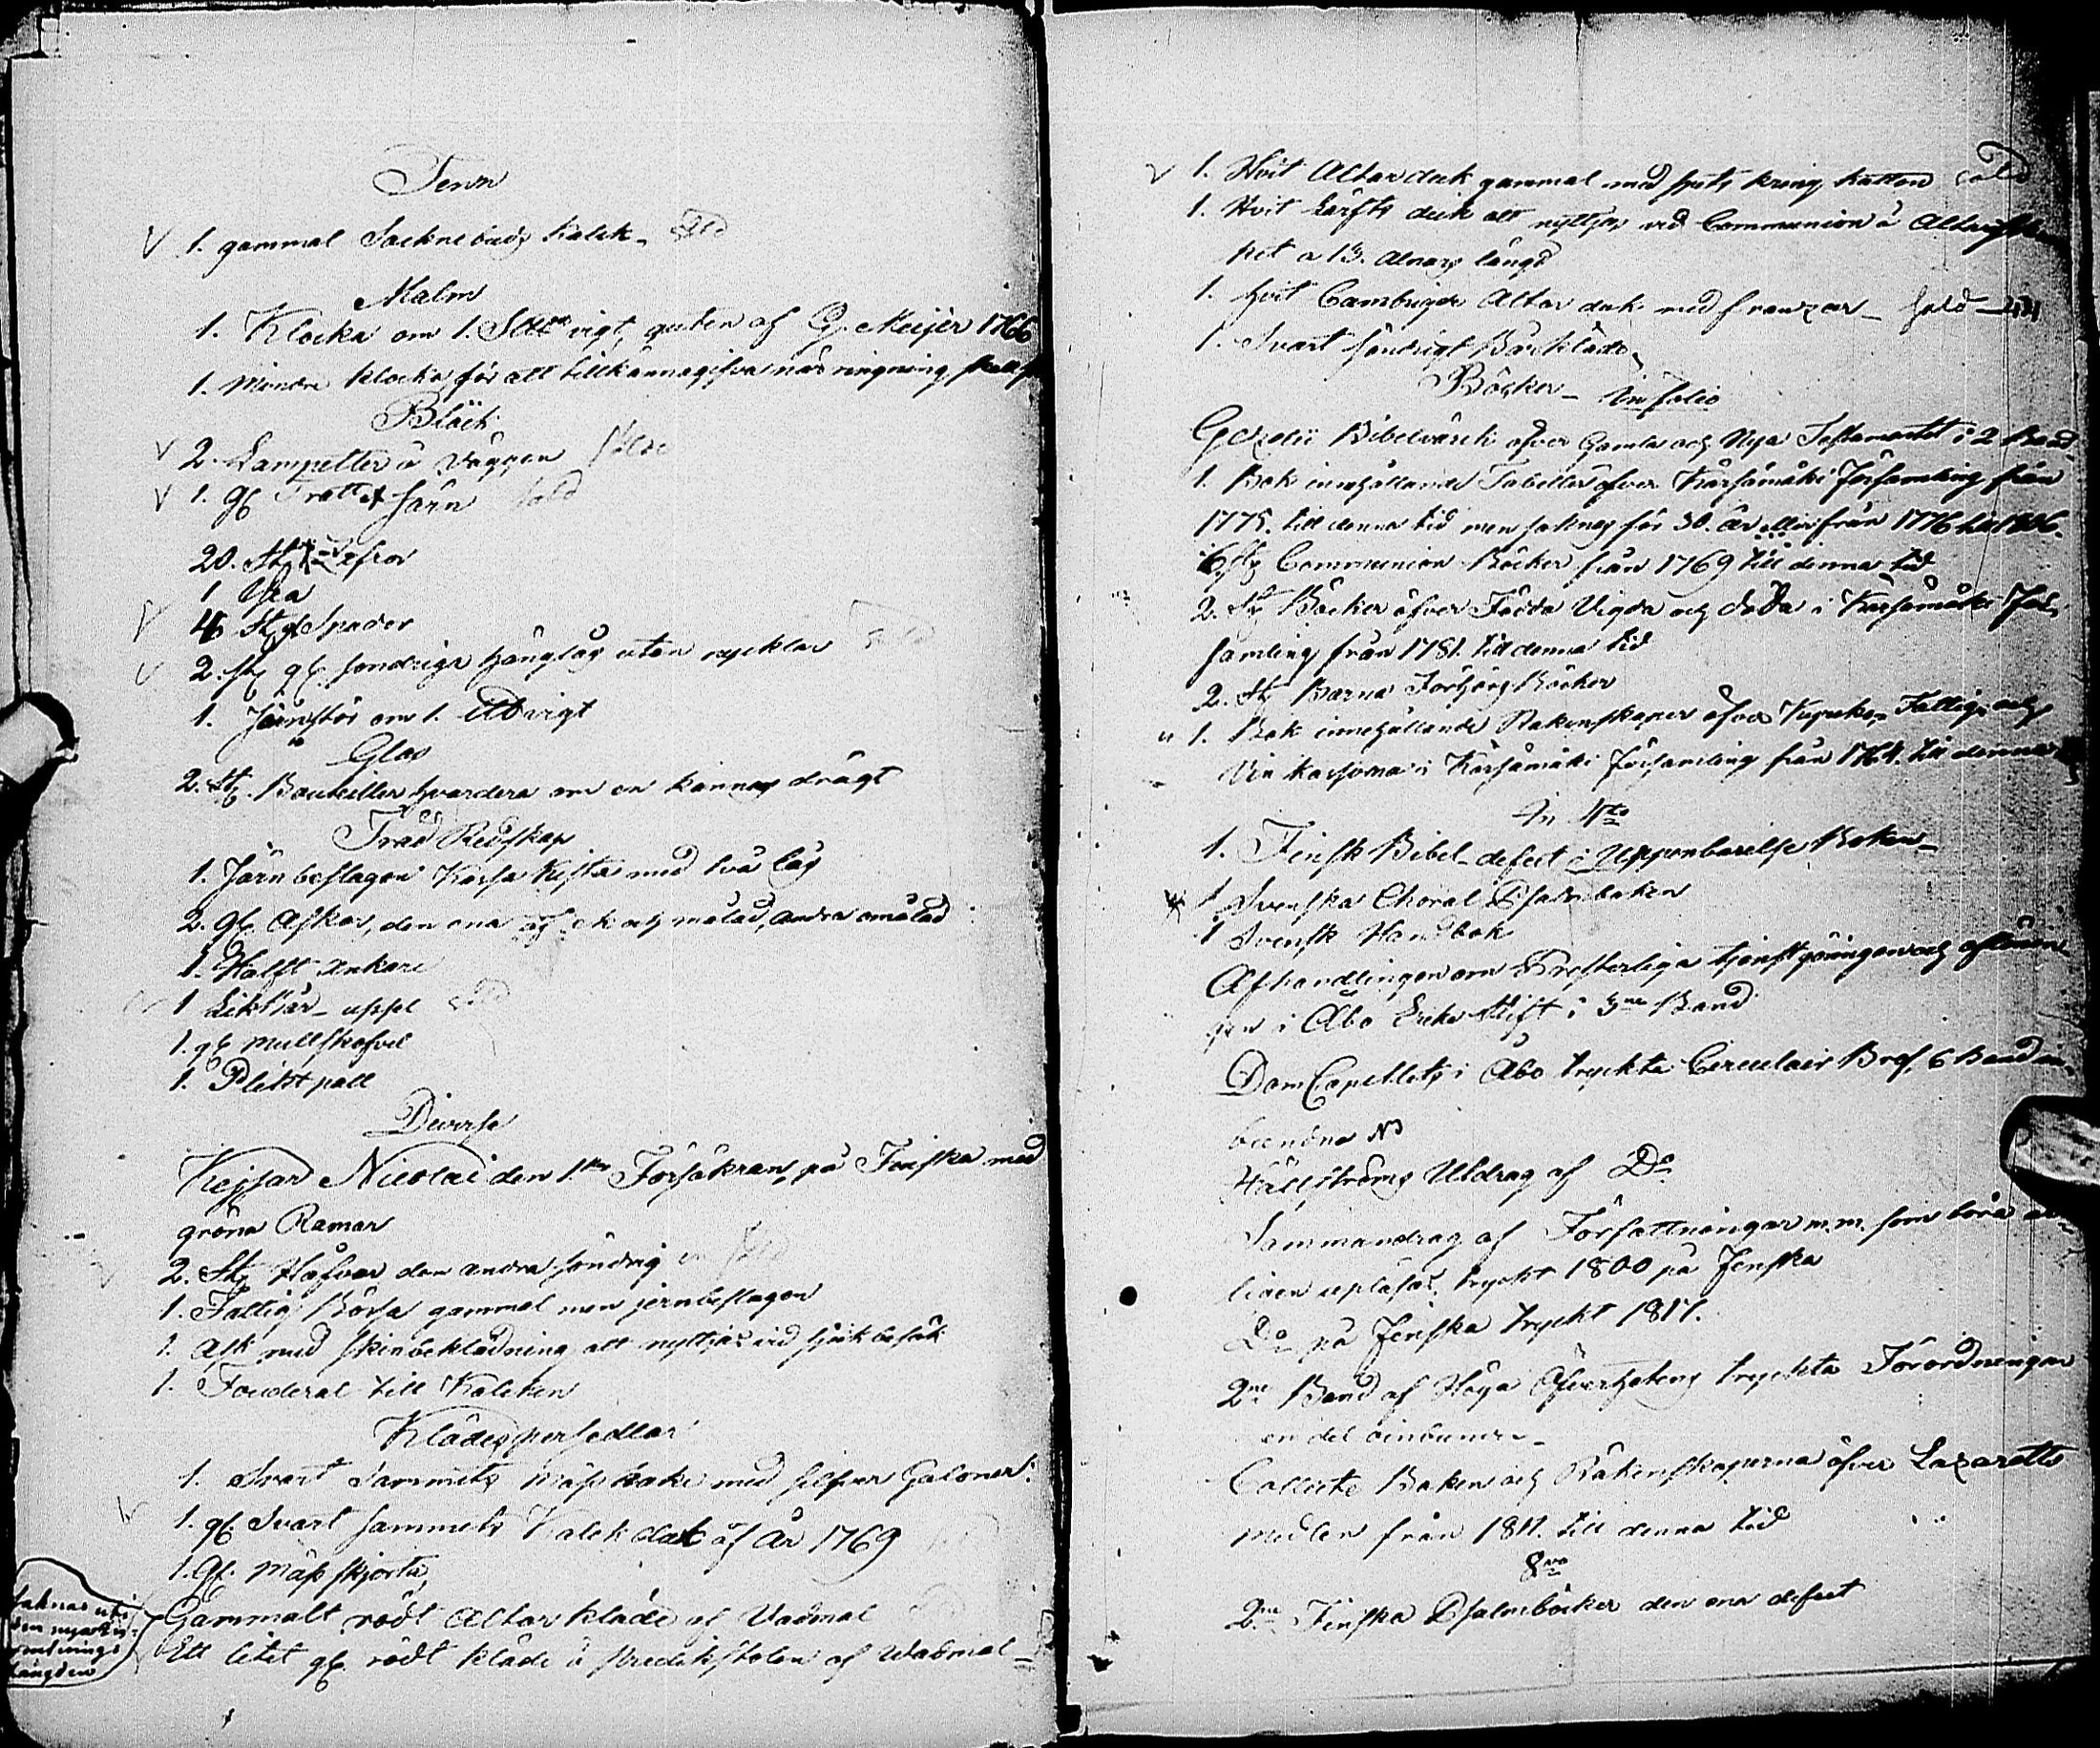 Tenn
1. gammal Sockne buds Kalk. Såld
Malm
1. Klocka om 1. vigt, guten af G. Meijer 1766
1. Mindre klocka för att tillkännagifva när ringning skall
Bläck
2. Lampetter å väggen såld
1. gl järn såld
20. St
1
4 St gl Spador
2. st gl. söndriga hänglås utan nycklar såld
1. Järnstör om 1. vigt
Glas
2. St. Bouteiller hvardera om en kannas drägt
Träd Redskap
1. Järn beslagen Kassa Kista med två lås
2. gl. Askar, den ena af ek och målad, andra omålad
1. Halft ankare
1 såld
1. gl mullskofvel
1. Pliktpall
Diverse
Kejsar Nicolai den 1.sta Försäkran, på Finska med
gröna Ramar
2. St Håfvar den andra söndrig
1. Fattig Börsa gammal men jernbeslagen
1. Ask med skinbeklädning att nyttjas vid sjukbesök
1. Fouderal till Kalken
Klädespersedlar
1. Svart Sammets Mäss hake med silfver Galoner.
1. gl. Svart sammets Kalk duk af År 1769
1. Gl. Mäss skjorta
Gammalt rödt Altar kläde af Vadmal
Ett litet gl. rödt kläde å Predikstolen af Wadmal
saknas uti
den nya
längden
1. Hvit Altar duk gammal med spets kring kanten såld
1. Hvit Lärfts duk att nyttjas vid Communion å
pet a 13. alnars längd
1. hvit Cambrigs Altar duk med franzar såld
1. Svart söndrigt Bårkläde
Böcker in folio
Gezelii Bibelvärk öfver Gamla och Nya Testamentet i 2 Band
1. Bok innehållande Tabeller öfver Kärsämäki Församling från
1775. till denna tid men saknas för 30. år eller från 1776 till 1806.
6 st Communion Böcker från 1769 till denna tid
2. St Böcker öfver Födda Vigda och döda i Kärsämäki För
samling från 1781. till denna tid
2. St Barna Förhörs Böcker
1. Bok innehållande Räkenskaper öfver Kyrko- Fattig- och
Vin kassorna i Kärsämäki församling från 1764. till denna
In 4to
1. Finsk Bibel defect i Uppenbarelse Boken
1 Svenska Choral Psalmboken
1 Svensk Handbok
Afhandlingen om Presterliga tjenstgöringen och aflönin
gen i Åbo Erke Stift i 3ne Band
Dom Capitlets i Åbo tryckta Circulair Bref, 6 Band in
bundna
Hällströms Utdrag af Do
Sammandrag af Författningar m.m. som böra
ligen upläsas, tryckt 1800 på Finska
Do på Finska tryckt 1817.
2ne Band af Höga Öfverhetens tryckta Förordningar
en del oinbundne
Collecte Boken och Räkenskaperna öfver Lazaretts
medlen från 1811. till denna tid
8vo
2ne Finska Psalmböcker den ena defect